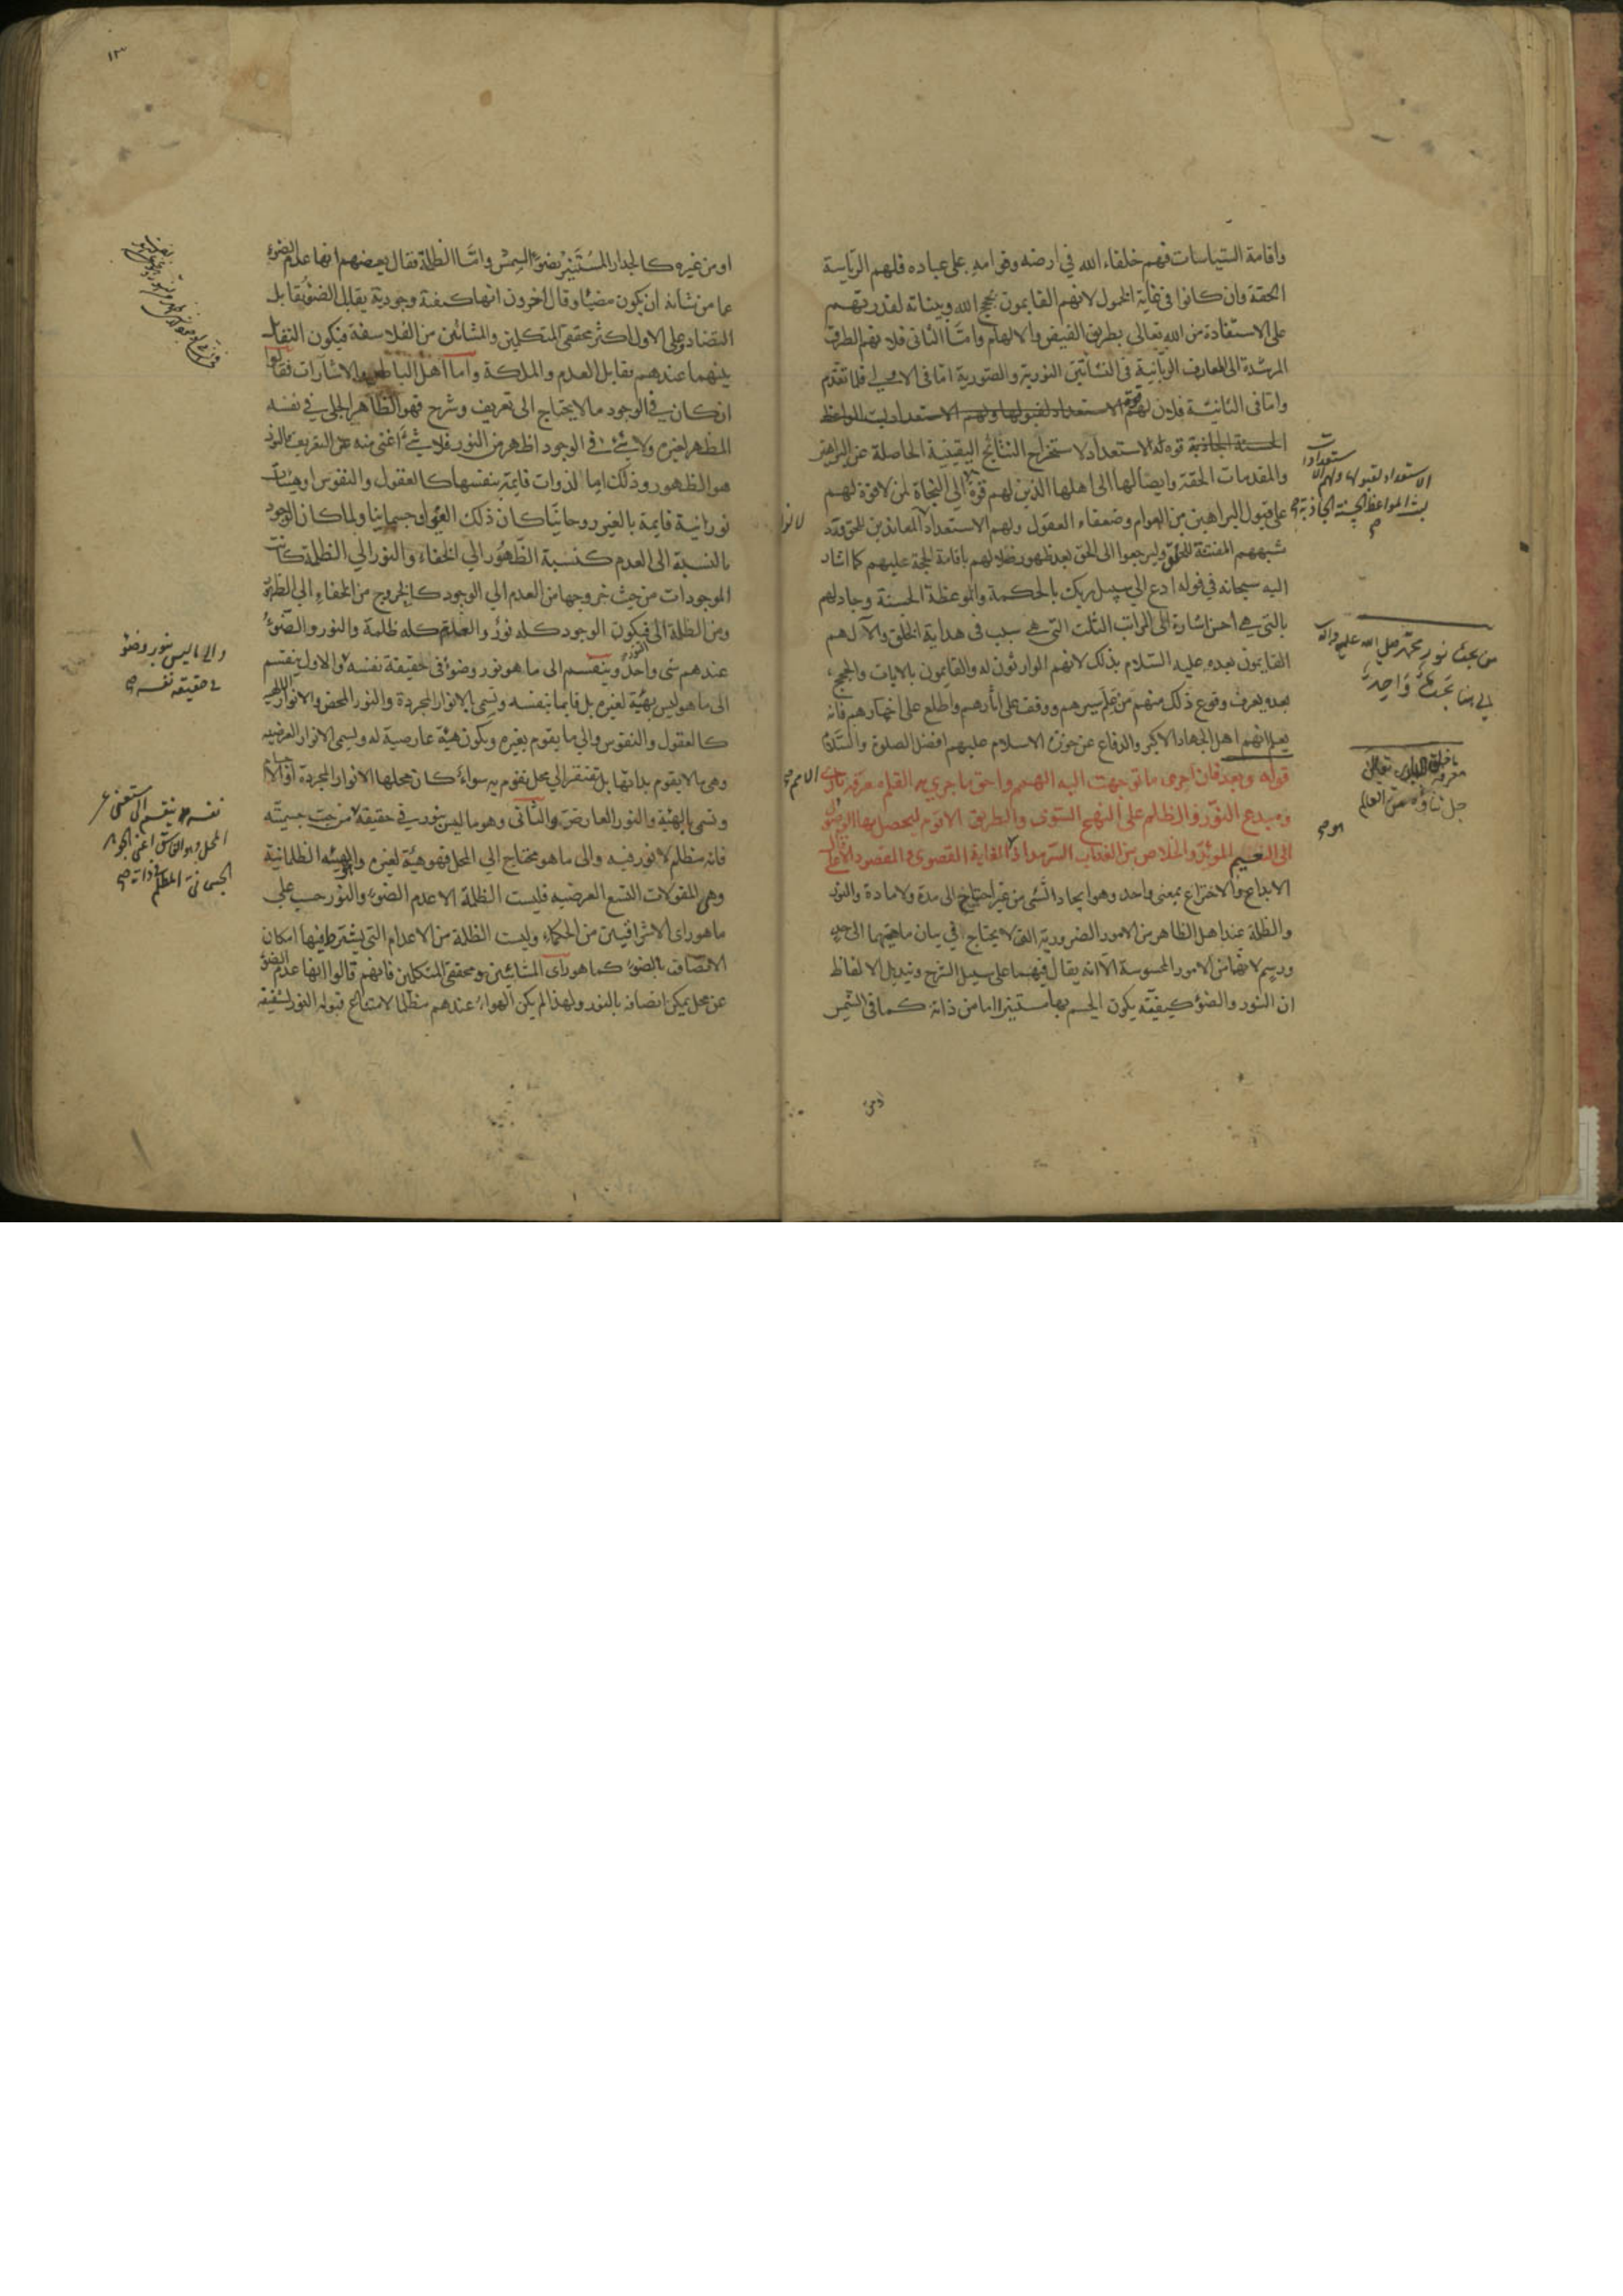 واقامة السياسات فهم خلفاء الله في ارضه وقوامه على عباده فلهم الرياسة
الحقة وان كانوا في غاية الخمول لانهم القايمون بحجج الله وبيناته لقدرتهم
على الاستفادة من الله تعالى بطريق الفيض والالهام وامّا الثانى فلانهم الطرق
المرشدة الى المعارف الربانية فى النشأتين النورية والصورية امّا فى الاولى فلما تقدم
وامّا فى الثانية فلان لهم قوة الاستعداد لقبولها ولهم الاستعداد المواعظ
الحسنة الجاذبة قوة الاستعداد لاستخراج النتائج اليقينية الحاصلة عن البراهين
والمقدمات الحقة وايصالها الى اهلها الذين لهم قوة الى النجاة لمن لا قوة لهم
على قبول البراهين من العوام وضعفاء العقول ولهم الاستعداد المعاندين للحق
شبههم المفتنة للخلق وليرجعوا الى الحق بعد ظهور ضلالهم باقامة الحجة عليهم كما اشار
اليه سبحانه في قوله ادع الى سبيل ربك بالحكمة والموعظة الحسنة وجادلهم
بالتي هي احسن اشارة الى المراتب الثلث التى هى سبب فى هداية الخلق والآل هم
القايمون بعده عليه السلام بذلك لانهم الوارثون له والقايمون بالايات والحجج
بعده يعرف وقوع ذلك منهم من علم سيرهم ووقف على آثارهم واطلع على اخبارهم فانه
يعلم انهم اهل الجهاد الاكبر والدفاع عن حوزة الاسلام عليهم افضل الصلوة والسلام
قوله وبعد فان احرى ما توجهت اليه الهمم واحق ما جرى به القلم معرفة بارى
ومبدع النور والظلم على النهج السوى والطريق الاقوم ليحصل بها الوصول
الى النعيم المؤبد والخلاص من العذاب السرمد اذ الغاية القصوى والمقصود الاعلى
الابداع والاختراع بمعنى واحد وهو ايجاد الشى من غير احتياج الى مدة ولا مادة والنور
والظلمة عند اهل الظاهر من الامور الضرورية التى لا يحتاج في بيان ماهيتها الى حد
ورسم لانهما من الامور المحسوسة الا انه يقال فيهما على سبيل الشرح وتبديل الالفاظ
ان النور والضوء كيفية يكون الجسم بها مستنيرا اما من ذاته كما فى الشمس
الاستعداد لقبولها ولهم
المواعظ الحسنة الجاذبة
من بحث نور محمد صلى الله عليه وآله
جل ثناؤه
اومن غيره كالجدار المستنير بضوء الشمس وامّا الظلمة فقال بعضهم انها عدم الضوء
عما من شانه ان يكون مضيئا وقال آخرون انها كيفية وجودية يقابل الضوء تقابل
التضاد وعلى الاول اكثر محققى المتكلمين والمشائين من الفلاسفة فيكون التقابل
بينهما عندهم تقابل العدم والملكة وامّا اهل الباطن والاشارات فقالوا
ان كان في الوجود ما لا يحتاج الى تعريف وشرح فهو الظاهر الجلى في نفسه
المظهر لغيره ولا شئ في الوجود اظهر من النور فلا شئ اغنى منه عن التعريف فالنور
هو الظهور وذلك اما لذوات قايمة بنفسها كالعقول والنفوس او هيئات
نورانية قايمة بالغير روحانيا كان ذلك الغير او جسمانيا ولما كان الوجود
بالنسبة الى العدم كنسبة الظهور الى الخفاء والنور الى الظلمة كانت
الموجودات من حيث خروجها من العدم الى الوجود كالخروج من الخفاء الى الظهور
ومن الظلمة الى فيكون الوجود كله نور والعدم كله ظلمة والنور والضوء
عندهم شى واحد وينقسم الى ما هو نور وضوء فى حقيقة نفسه والاول ينقسم
الى ما هو ليس بهيئة لغيره بل قايما بنفسه وتسمى بالانوار المجردة والنور المحض والانوار الالهية
كالعقول والنفوس والى ما يقوم بغيره ويكون هيئة عارضية له ويسمى الانوار العرضية
وهى ما لا يقوم بذاتها بل تفتقر الى محل تقوم به سواء كان محلها الانوار المجردة او الاجسام
وتسمى بالهيئة والنور العارض والثانى وهو ما ليس بنور في حقيقة من حيث جسميته
فانه مظلم لا نور فيه والى ما هو محتاج الى المحل فهو هيئة لغيره والهيئة الظلمانية
وهى المقولات التسع العرضيه فليست الظلمة الا عدم الضوء والنور حسب على
ما هو راى الاشراقيين من الحكماء وليست الظلمة من الاعدام التى يشترط فيها امكان
الاتصاف بالضوء كما هو راى المشائين ومحققى المتكلمين فانهم قالوا انها عدم الضوء
عن محل يمكن اتصافه بالنور ولهذا لم يكن الهواء عندهم مظلما لامتناع قبوله النور لشفيفه
والى ما ليس بنور وضوء
فى حقيقة نفسه
نفسه ينقسم الى مستغن عن
المحل وهو الغاسق اعنى الجوهر
الجسمانى المظلم فى ذاته
١٣